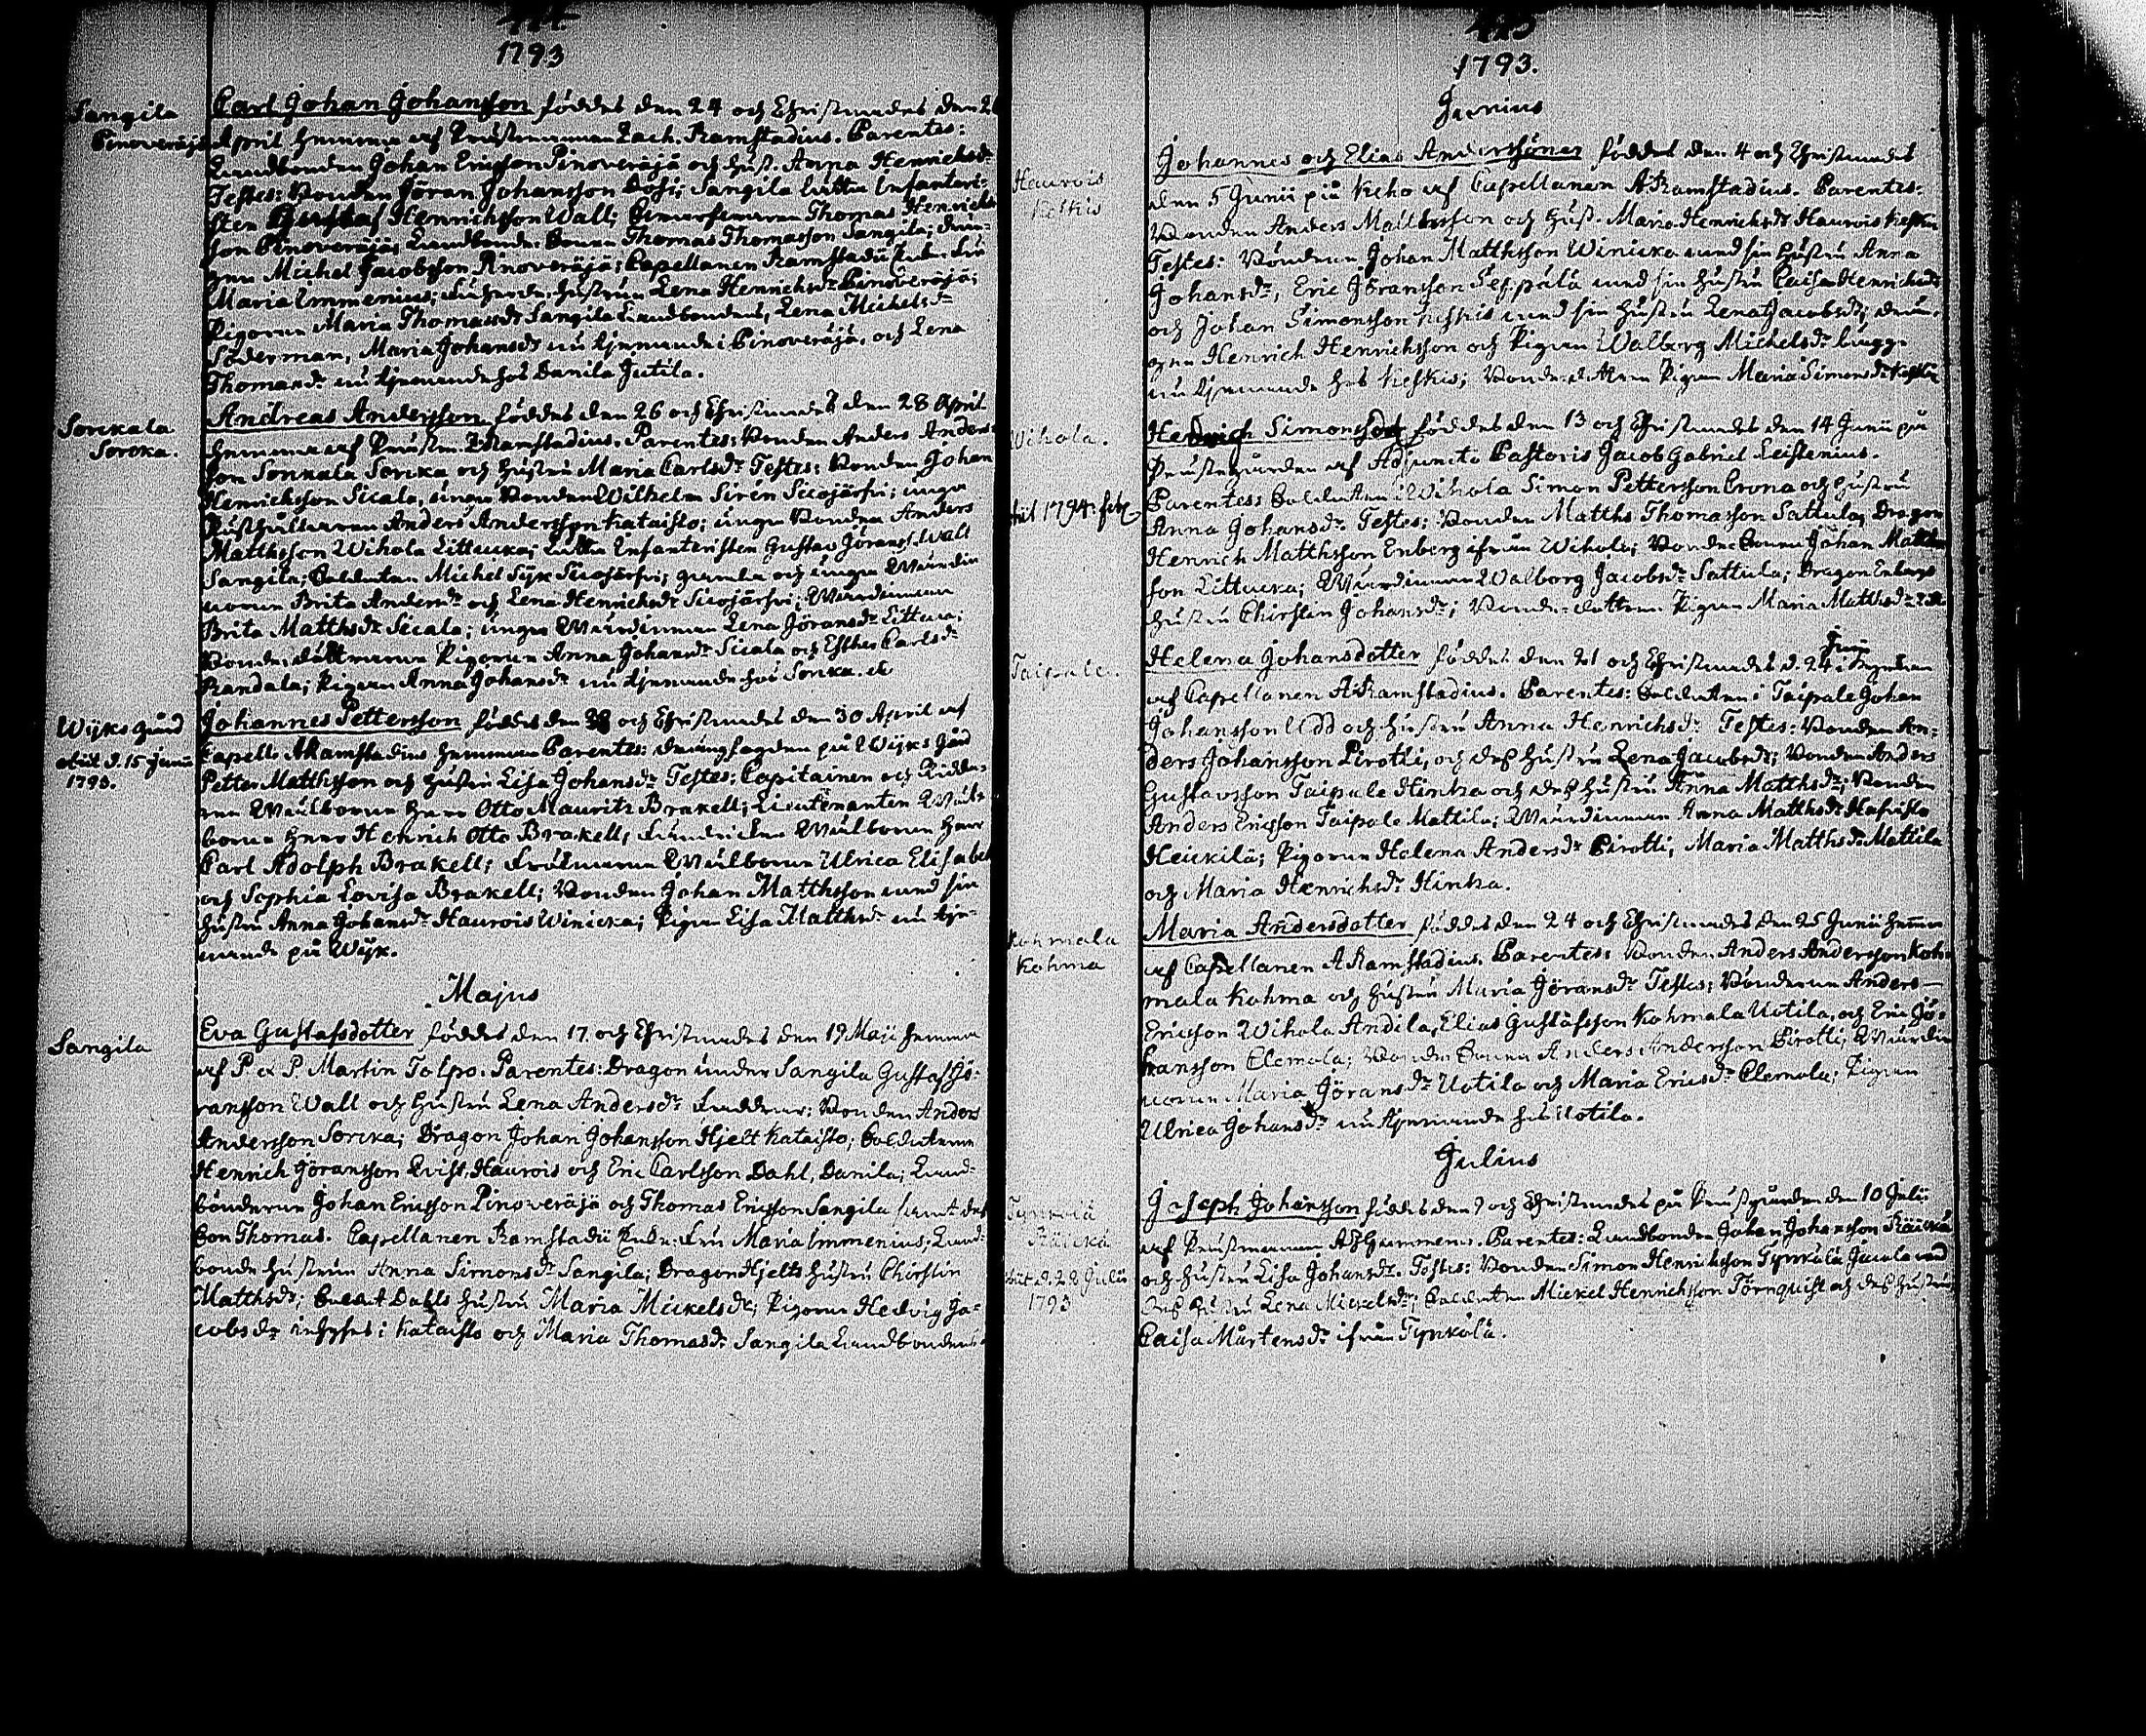 1793
Sangila
Pinoveräjä
Carl Johan Johansson föddes den 24 och Christnades den
April hemma af Prustmannen Zach. Ramstadius. Parentes:
Landbonden Johan Ericsson Pinoveräjä och hust. Anna Henrichsdr
Testes: Bonden Jöran Johansson Sangila Lätta Infanteri-
sten Gustaf Henrichsson Wall; Thomas Henrichs
son Pinoveräjä; Landbonde Sonen Thomas Thomasson Sangila; drän-
gen Michel Jacobsson Pinoveräjä; Capellanen Ramstadii Enke: Fru
Maria Emmenius; hustrun Lena Henrichsdr Pinoveräjä;
Pigorna Maria Thomasdr Sangila Landbondens, Lena Michelsdr
Söderman, Maria Johansdr nu tjenande i Pinoveräjä, och Lena
Thomasdr nu tjenande hos Danila Jutila.
Sorckala
Sorcka.
Andreas Andersson föddes den 26 och Christnades den 28 April
hemma af Z Ramstadius. Parentes: Bonden Anders Anders-
son Sorckala Sorcka och hustru Maria Carlsdr Testes: Bonden Johan
Henricksson Sicala, unga Bonden Wilhelm Sirén Sicojärfvi; unga
Rusthållaren Anders Andersson Kataisto; unga Bonden Anders
Matthsson Wihola Littucka; Lätta Infanteristen Gustav Jöranss. Wall
Sangila; Soldaten Michel Syx Sicojärfvi; gamla och unga Wärdin
norna Brita Andersdr och Lena Henrichsdr Sicojärfvi; Wärdinnan
Brita Matthsdr Sicala; unga Wärdinnan Lena Jöransdr Littuca;
Bonde-döttrarna Pigorna Anna Johansdr Sicala och Esther Carlsdr
Randala; Pigan Anna Johansdr nu tjenande hos Sorcka.
Wijks gård
obiit d. 15 Junii
1793.
Johannes Pettersson föddes den 28 och Christnades den 30 April af
Capell. A Ramstadius hemma Parentes: på Wijks gård
Petter Matthsson och hustru Lisa Johansdr Testes: Capitainen och Ridda-
ren Wälborne Herr Otto Mauritz Brakell; Lieutenanten Wäl-
borne Herr Henrich Otto Brakell, Fändricken Wälborne Herr
Carl Adolph Brakell; Fröknarna Wälborna Ulrica Elisabet
och Sophia Lovisa Brakell; Bonden Johan Matthsson med sin
hustru Anna Johansdr Haurois Winicka; Pigan Lisa Matthsdr nu tje-
nande på Wijk.
Majus
Sangila
Eva Gustafsdotter föddes den 17 och Christnades den 19 Maji hemma
af P & P Martin Tolpo. Parentes: Dragon under Sangila Gustaf Jö-
ransson Wall och hustru Lena Andersdr Faddrar: Bonden Anders
Andersson Sorcka; Dragon Johan Johansson Hjelt Kataisto; Soldaterna
Henrich Jöransson Qvist, Haurois och Eric Carlsson Dahl, Danila; Land-
bönderna Johan Ericsson Pinoveräjä och Thomas Ericsson Sangila samt dess
Son Thomas. Capellanen Ramstadii Enke: Fru Maria Emmenius; Land-
bonde hustrun Anna Simonsdr Sangila; Dragon Hjelts hustru Chirstin
Matthsdr; Soldat Dahls hustru Maria Mickelsdr; Pigorna Hedvig Ja-
cobsdr inhyses i Kataisto och Maria Thomasdr Sangila Landbondens.
1793.
Junius
Haurois
Keskis
Johannes och Elias Anderssöner föddes den 4 och Christnades
den 5 Junii på Keho af Capellanen A Ramstadius. Parentes:
Bonden Anders Matthsson och hust. Maria Henrichsdr Haurois Keskis
Testes: Bönderna Johan Matthsson Winicka med sin hustru Anna
Johansdr, Eric Jöransson Seppälä med sin hustru Caisa Henrichsdr
och Johan Simonsson Keskis med sin hustru Lena Jacobsdr; drän-
gen Henrich Henrichsson och Pigan Walborg Michelsdr begge
nu tjenande hos Keskis; Bonde-dottren Pigan Maria Simonsdr Keskis
Wihola.
obiit 1794 febr.
Hedvich Simonsdot föddes den 13 och Christnades den 14 Junii på
Prustegården af Adjuncto Pastoris Jacob Gabriel Leistenius.
Parentes: Soldaten i Wihola Simon Pettersson Crona och hustru
Anna Johansdr. Testes: Bonden Matths Thomasson Sattula, Dragon
Henrich Matthsson Enberg ifrån Wihola; Bonde Sonen Johan Matths
son Littucka; Wärdinnan Walborg Jacobsdr Sattula; Dragon Enbergs
hustru Chirstin Johansdr; Bonde-dottren Pigan Maria Matthsdr
Taipale.
Helena Johansdotter föddes den 21 och Christnades d. 24 Junii i Kyrkan
af Capellanen A Ramstadius. Parentes: Soldaten i Taipale Johan
Johansson Udd och hustru Anna Henrichsdr Testes: Bonden An-
ders Johansson Pirotti, och dess hustru Lena Jacobsdr; Bonden Anders
Gustavsson Taipale Hinka och dess hustru Anna Matthsdr; Bonden
Anders Ericsson Taipale Mattila; Wärdinnan Anna Matthsdr Hapuisto
Heickilä; Pigorna Helena Andersdr Pirotti, Maria Matthsdr Mattila
och Maria Henrichsdr Hinka.
Kohmala
Kohma
Maria Andersdotter föddes den 24 och Christnades den 25 Junii hemma
af Capellanen A Ramstadius. Parentes: Bonden Anders Andersson Koh-
mala Kohma och hustru Maria Jöransdr Testes: Bönderna Anders
Ericsson Wihola Andila, Elias Gustafsson Kohmala Uotila, och Eric Jö-
hransson Clemola; Bonde Sonen Anders Andersson Pirotti; Wärdin
norna Maria Jöransdr Uotila och Maria Ericsdr Clemola; Pigan
Ulrica Johansdr nu tjenande hos Uotila.
Julius
Tyrvälä
Räickä
obiit d. 28 Julii
1793
Joseph Johansson föddes den 9 och Christnades på Prustgården den 10 Julii
af Prustmannen. Parentes: Landbonden Johan Johansson Räickä
och hustru Lisa Johansdr. Testes: Bonden Simon Henricksson Tynkälä Jacola med
dess hustru Lena Mickelsdr; Soldaten Mickel Henrichsson Törnquist och dess hustru
Caisa Mårtensdr ifrån Tynkälä.